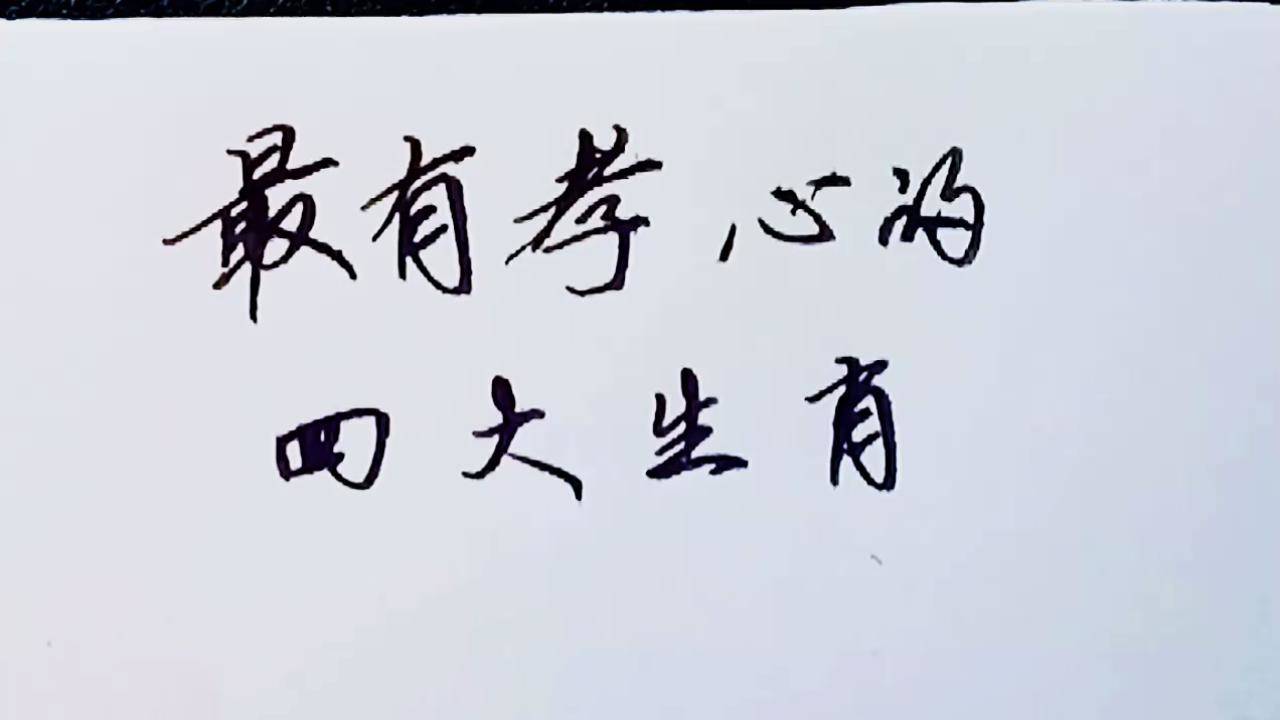 最有孝心的
四大生肖